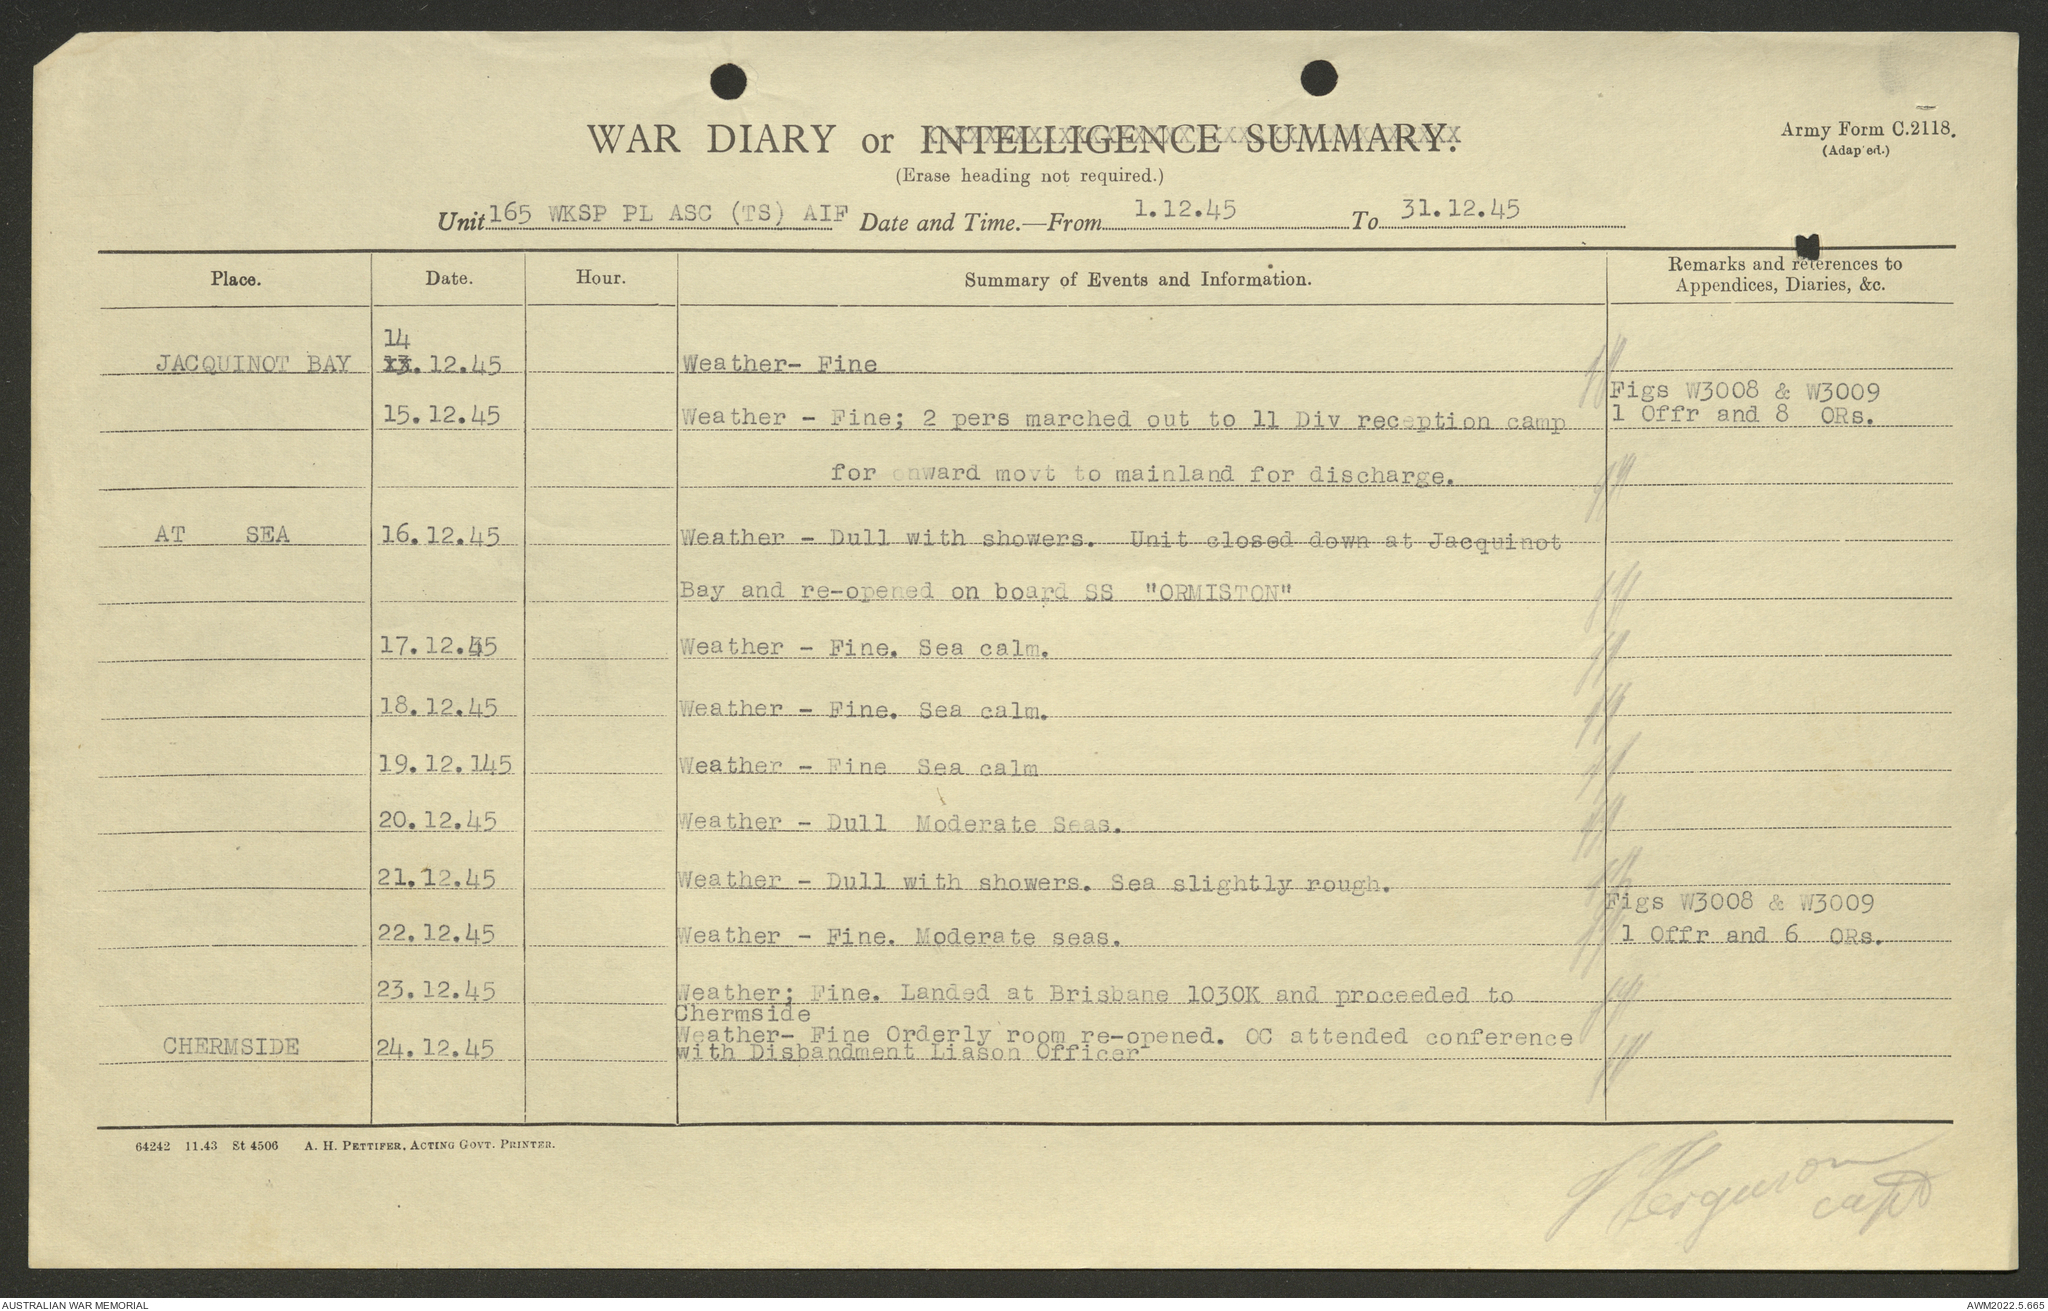 WAR DIARY or INTELLIGENCE SUMMARY.
Army Form C.2118.
(Adap ed.)
(Erase heading not required.)
Unit 165 WKSP PL ASC (TS) AIF Date and Time.—From 1.12.45 To 31.12.45
Place. Date. Hour. Summary of Events and Information. Remarks and references to
Appendices, Diaries, &c.
14
JACQUINOT BAY 13.12.45 Weather- Fine
Figs W3008 & W3009
15.12.45 Weather - Fine; 2 pers marched out to 11 Div reception camp 1 Offr and 8 ORs.
for onward movt to mainland for discharge.
AT SEA 16.12.45 Weather - Dull with showers. Unit closed down at Jacquinot
Bay and re-opened on board SS "ORMISTON"
17.12.45 Weather - Fine. Sea calm.
18.12.45 Weather - Fine. Sea calm.
19.12.145 Weather - Fine Sea calm
20.12.45 Weather - Dull Moderate Seas.
21.12.45 Weather - Dull with showers. Sea slightly rough.
Figs W3008 & W3009
22.12.45 Weather - Fine. Moderate seas. 1 Offr and 6 ORs.
23.12.45 Weather; Fine. Landed at Brisbane 1030K and proceeded to
Chermside
CHERMSIDE 24.12.45 Weather- Fine Orderly room re-opened. OC attended conference
with Disbandment Liason Officer
64242 11.43 St 4506 A. H. PETTIFER, ACTING GOVT. PRINTER.
Ferguson
capt
AUSTRALIAN WAR MEMORIAL
AWM2022.5.665